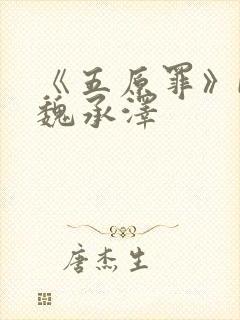 《五原罪》
魏承泽
唐杰生